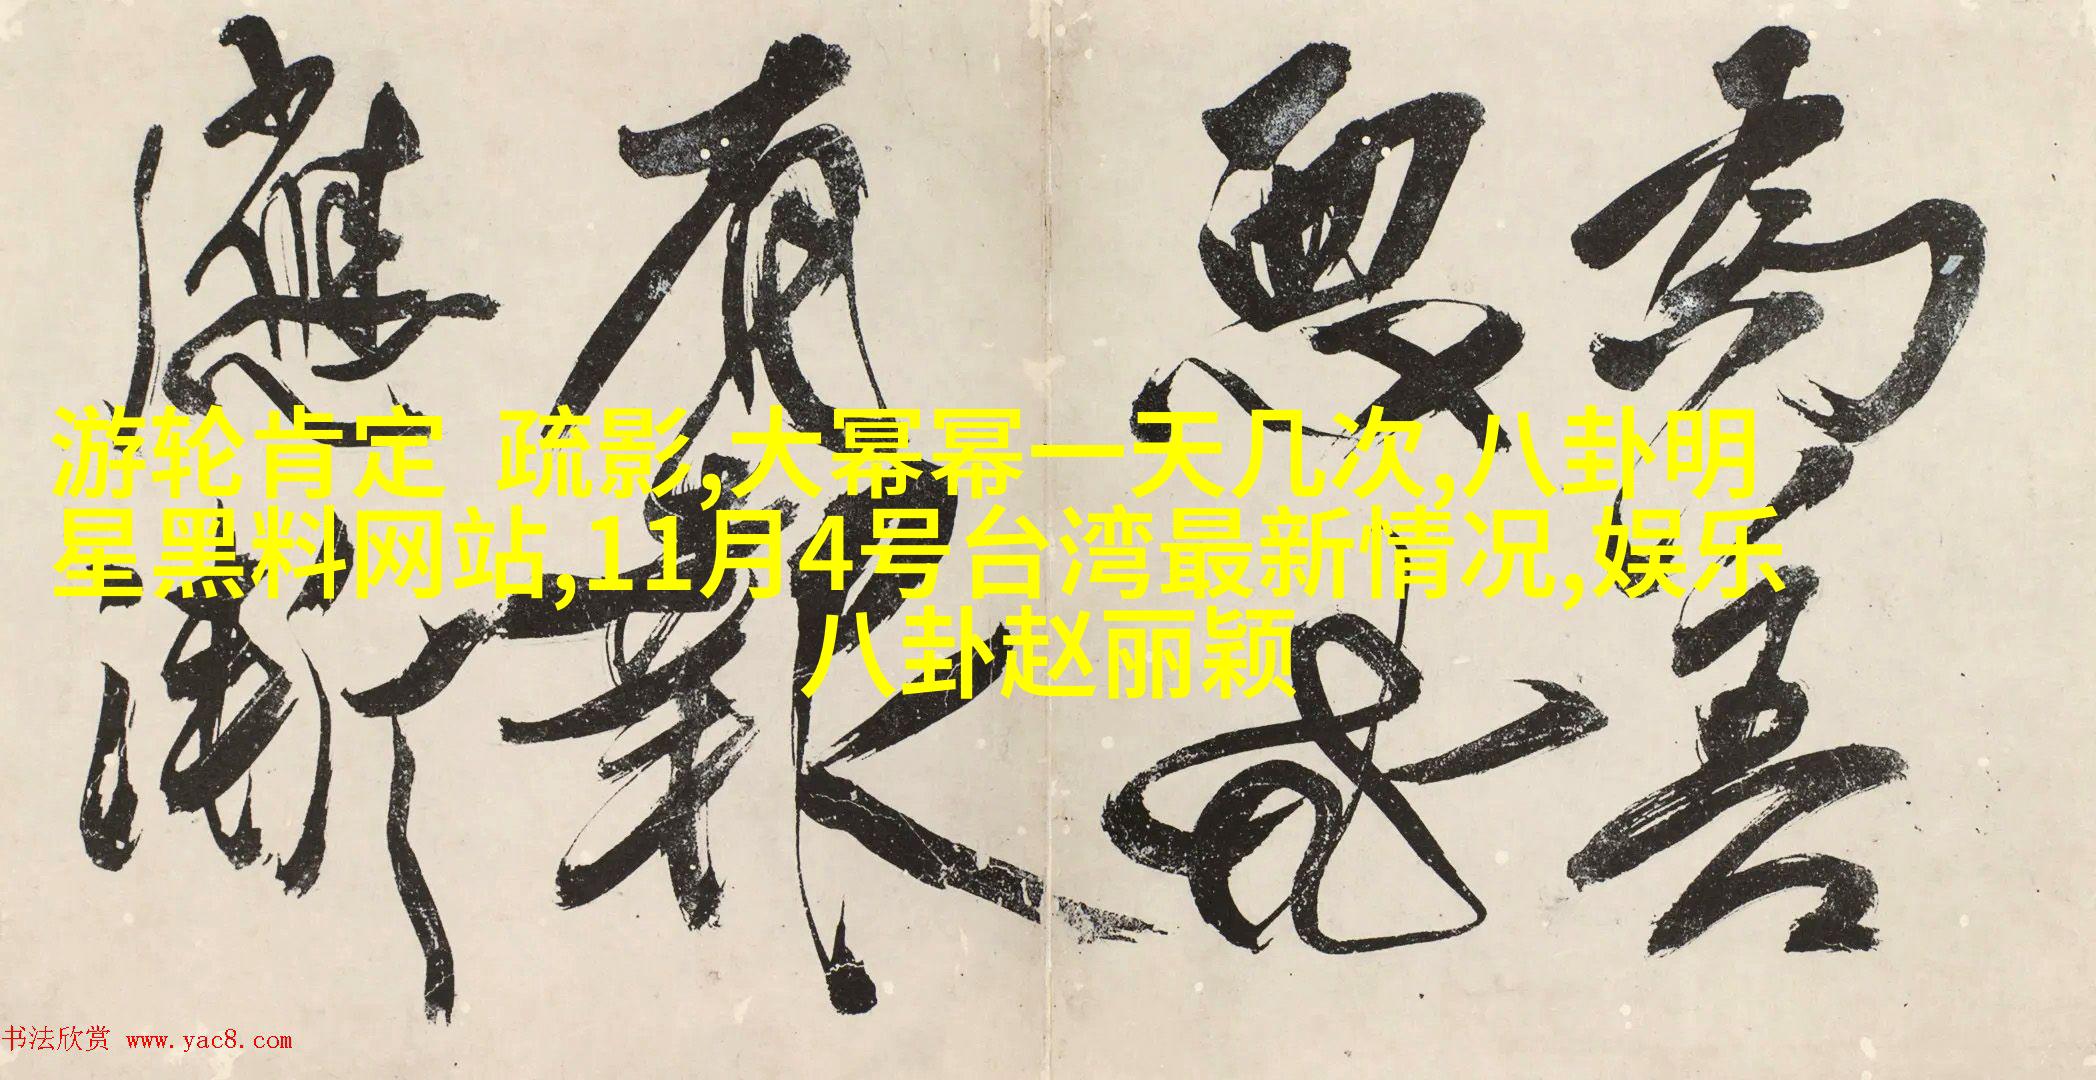 為善
要武
有報
應漸
游轮肯定 疏影,大幂幂一天几次,八卦明
星黑料网站,11月4号台湾最新情况,娱乐
八卦赵丽颖
书法欣赏 www.yac8.com